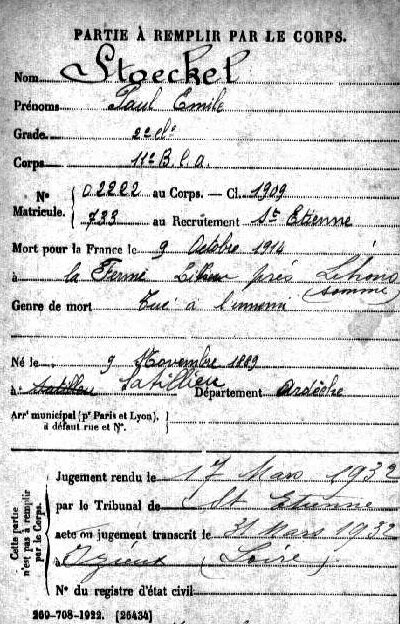 PARTIE À REMPLIR PAR LE CORPS.
Nom Stoeckel
Prénoms Paul Emile
Grade 2e cl.
Corps 11e B.C.a.
No Matricule. 02222 au Corps. — Cl. 1909
733 au Recrutement St Etienne
Mort pour la France le 9 Octobre 1914
à la Ferme Lihu près Lihons
(Somme)
Genre de mort Tué à l'ennemi
Né le 9 Novembre 1889
à Satillieu Département Ardèche
Arrt municipal (pr Paris et Lyon),
à défaut rue et No.
Cette partie n'est pas à remplir par le Corps.
Jugement rendu le 17 Mars 1932
par le Tribunal de St Etienne
acte ou jugement transcrit le 31 Mars 1932
à Izieux (Loire)
No du registre d'état civil
269-708-1922. [26434]